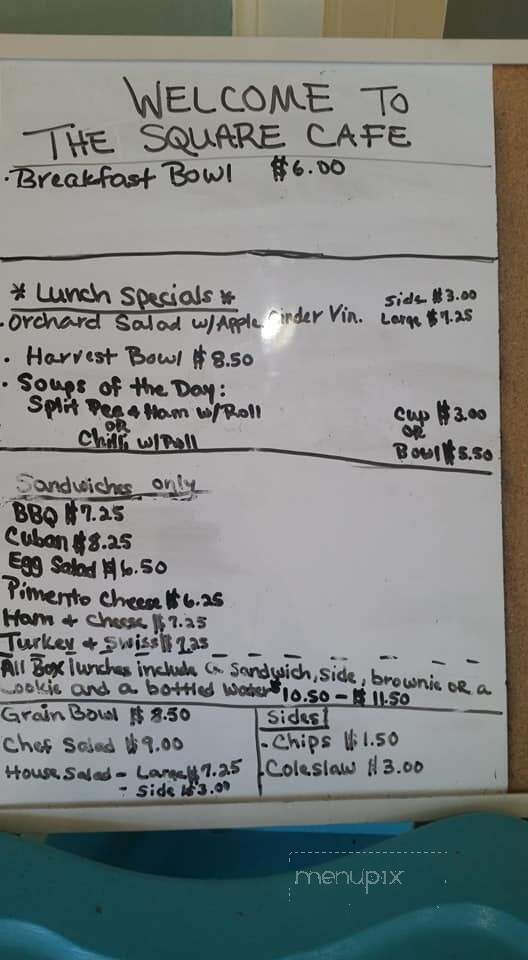 WELCOME TO
THE SQUARE CAFE
· Breakfast Bowl $6.00
* Lunch Specials *
· Orchard Salad w/Apple Cinder Vin. Side $3.00
Large $7.25
· Harvest Bowl $8.50
· Soups of the Day:
Split Pea & Ham w/Roll Cup $3.00
OR OR
Chilli w/Roll Bowl $5.50
Sandwiches only
BBQ $7.25
Cuban $8.25
Egg Salad $6.50
Pimento Cheese $6.25
Ham & Cheese $7.25
Turkey & Swiss $7.25
All Box lunches include a Sandwich, side, brownie OR a
cookie and a bottled water $10.50 - $11.50
Grain Bowl $8.50
Chef Salad $9.00
House Salad - Large $7.25
- Side $3.00
Sides!
· Chips $1.50
· Coleslaw $3.00
menupix